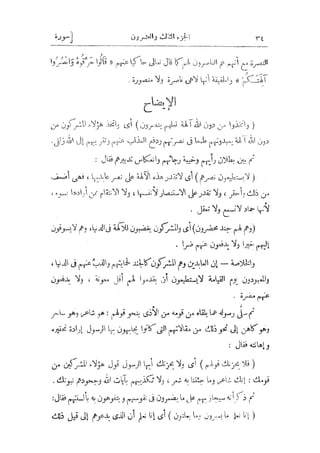 ٣٤ الجزء الثالث والعشرون [ سورة
النصرة مع أنهم هم الناصرون لهم كما قال تعالى حاكيا عنهم « قَالُوا حَرِّقُوهُ وَانْصُرُوا
آلِهَتَكُمْ » والحقيقة أنها لا هى ناصرة ولا منصورة .
الإيضاح
( واتخذوا من دون الله آلهة لعلهم ينصرون ) أى واتخذ هؤلاء المشركون من
دون الله آلهة يعبدونهم طمعا فى نصرتهم ودفع العذاب عنهم وتقربهم إلى الله زلفى.
ثم بين بطلان رأيهم وخيبة رجائهم وانعكاس تدبيرهم فقال :
( لا يستطيعون نصرهم ) أى لا تقدر هذه الآلهة على نصر عابديها ، فهى أضعف
من ذلك وأحقر ، ولا تقدر على الاستنصار لأنفسها ، ولا الانتقام ممن أرادها بسوء ،
لأنها جماد لا تسمع ولا تعقل .
( وهم لهم جند محضرون ) أى والمشركون يغضبون للآلهة فى الدنيا، وهم لا يسوقون
إليهم خيرا ولا يدفعون عنهم ضرا .
والخلاصة — إن العابدين وهم المشركون كالجند لحمايتهم والذب عنهم فى الدنيا ،
والمعبودون يوم القيامة لا يستطيعون أن يقدموا لهم أقل معونة ، ولا يدفعون
عنهم مضرة .
ثم سلّى رسوله عما يلقاه من قومه من الأذى بنحو قولهم : هو شاعر وهو ساحر
وهو كاهن إلى نحو ذلك من مقالاتهم التى كانوا يجابهون بها الرسول إرادة تحقيره
وإهانته فقال :
( فلا يحزنك قولهم ) أى ولا يحزنك أيها الرسول قول هؤلاء المشركين من
قومك : إنك شاعر وما جئتنا به شعر ، ولا تكذيبهم بآيات الله وجحودهم نبوتك .
ثم ذكر أنه سيجازيهم على ما يضمرون فى نفوسهم ويتفوهون به بألسنتهم فقال:
( إنا نعلم ما يسرون وما يعلنون ) أى إنا نعلم أن الذى يدعوهم إلى قيل ذلك